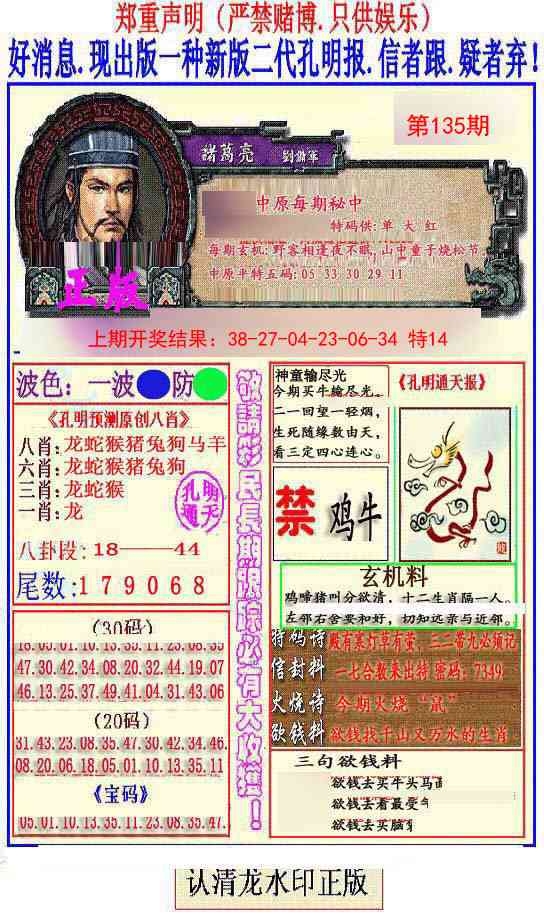 郑重声明（严禁赌博.只供娱乐）
好消息.现出版一种新版二代孔明报.信者跟.疑者弃！
第135期
諸葛亮 劉備軍
中原每期秘中
特码供:单 大 红
每期玄机:野客相逢夜不眠,山中童子烧松节
中原平特五码:05 33 30 29 11
正版
上期开奖结果：38-27-04-23-06-34 特14
波色：一波 防
《孔明预测原创八肖》
八肖:龙蛇猴猪兔狗马羊
六肖:龙蛇猴猪兔狗
三肖:龙蛇猴
一肖:龙
孔明
通天
八卦段:18——44
尾数:179068
(30码)
18.05.01.10.13.35.11.23.08.35
47.30.42.34.08.20.32.44.19.07
46.13.25.37.49.41.04.31.43.06
(20码)
31.43.23.08.35.47.30.42.34.46.
08.20.06.18.05.01.10.13.35.11
《宝码》
05.01.10.13.35.11.23.08.35.47.
敬請彩民長期跟踪必有大收獲！
神童输尽光
今期买牛输尽光。
二一回望一轻烟，
生死随缘数由天，
看三定四心连心。
《孔明通天报》
禁 鸡牛
玄机料
鸡啼猪叫分欲清，十二生肖隔一人。
左邻右舍要和好，切知远亲与近邻。
特码诗 殿有寒灯草有萤，三二带九必须记
信封料 一七合数乘出特 密码：7349
火烧诗 今期火烧“鼠”
欲钱料 欲钱找千山又万水的生肖
三句欲钱料
欲钱去买牛头马面
欲钱去看最受
欲钱去买脑
认清龙水印正版